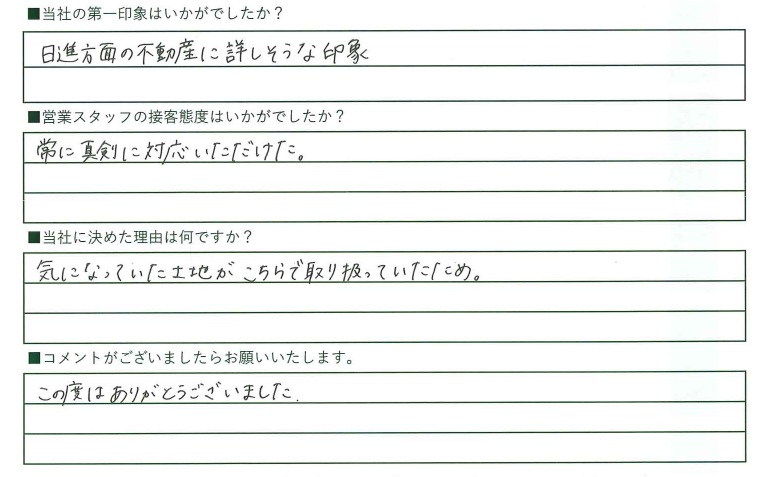 ■当社の第一印象はいかがでしたか？
日進方面の不動産に詳しそうな印象
■営業スタッフの接客態度はいかがでしたか？
常に真剣に対応いただけた。
■当社に決めた理由は何ですか？
気になっていた土地がこちらで取り扱っていたため。
■コメントがございましたらお願いいたします。
この度はありがとうございました.